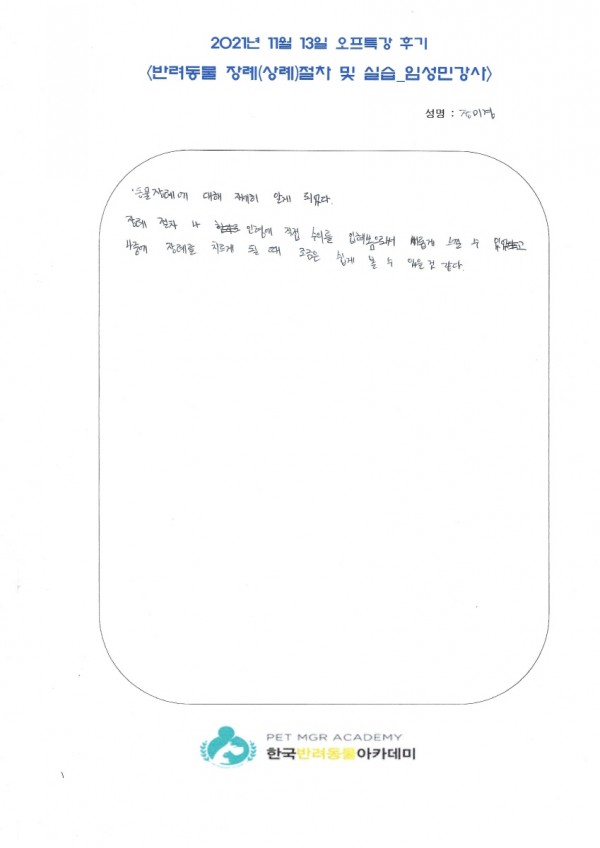 2021년 11월 13일 오프특강 후기
<반려동물 장례(상례)절차 및 실습_임성민강사>
성명 :
동물장례에 대해 자세히 알게 되었다.
장례 절차 나 인형에 직접 수의를 입혀봄으로써 새롭게 느낄 수 있었고
나중에 장례를 치르게 될 때 조금은 쉽게 볼 수 있을 것 같다.
PET MGR ACADEMY
한국반려동물아카데미